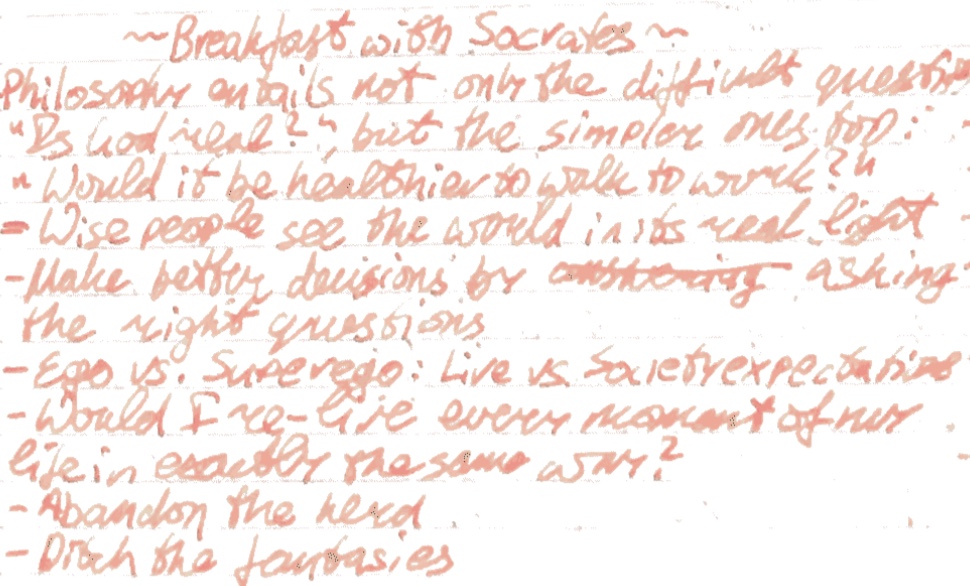 ~ Breakfast with Socrates ~
Philosophy entails not only the difficult questions
"Is God real?", but the simpler ones too:
"Would it be healthier to walk to work?"
- Wise people see the world in its real light
- Make better decisions by asking
the right questions
- Ego vs. Superego: Live vs. Society expectations
- Would I re-live every moment of my
life in exactly the same way?
- Abandon the herd
- Ditch the fantasies